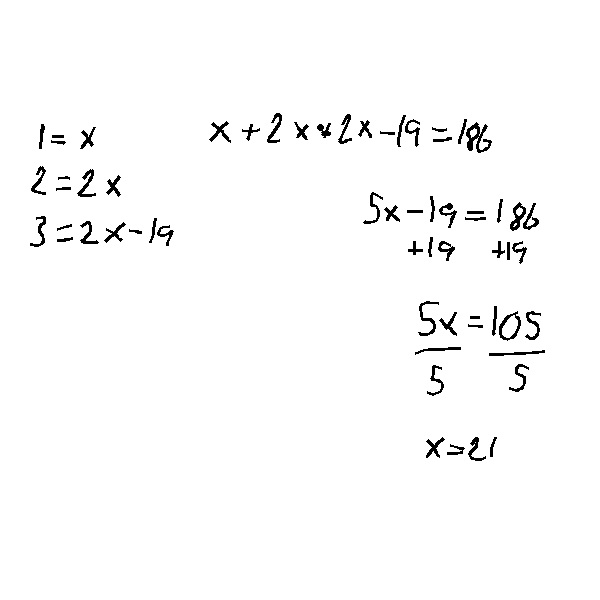 1 = x
2 = 2x
3 = 2x - 19
x + 2x + 2x - 19 = 186
5x - 19 = 186
+19 +19
5x = 105
5 5
x = 21